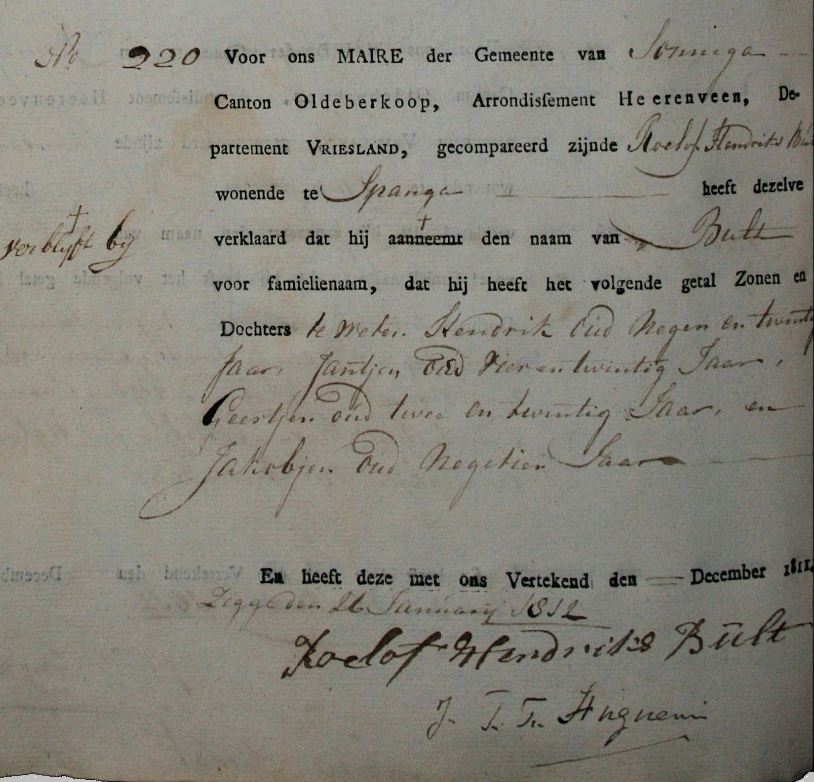 No 220 Voor ons MAIRE der Gemeente van Sonnega
Canton Oldeberkoop, Arrondissement Heerenveen, De-
partement VRIESLAND, gecompareerd zijnde Roelof Hendriks Bult
wonende te Spanga heeft dezelve
verblyft by verklaard dat hij aanneemt den naam van Bult
voor famielienaam, dat hij heeft het volgende getal Zonen en
Dochters te weten. Hendrik oud Negen en twintig
Jaar, Jantjen oud vier en twintig Jaar,
Geertjen oud twee en twintig Jaar, en
Jakobjen oud Negetien Jaar
En heeft deze met ons Vertekend den December 1811.
Zegge den Januarij 1812
Roelof Hendriks Bult
J. T. Huguenin